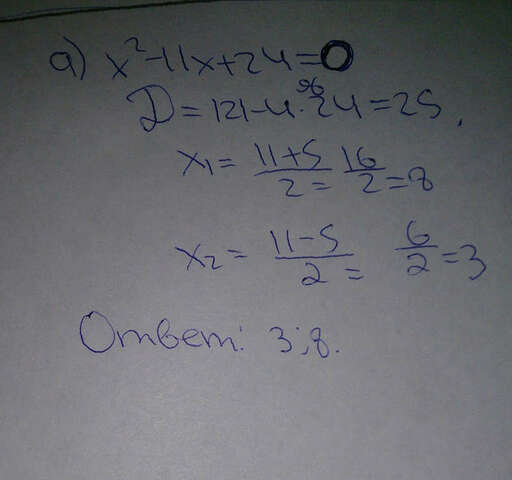 а) x²-11x+24=0
D=121-4·24=25.
96
x₁= 11+5/2 = 16/2 =8
x₂= 11-5/2 = 6/2 =3
Ответ: 3;8.